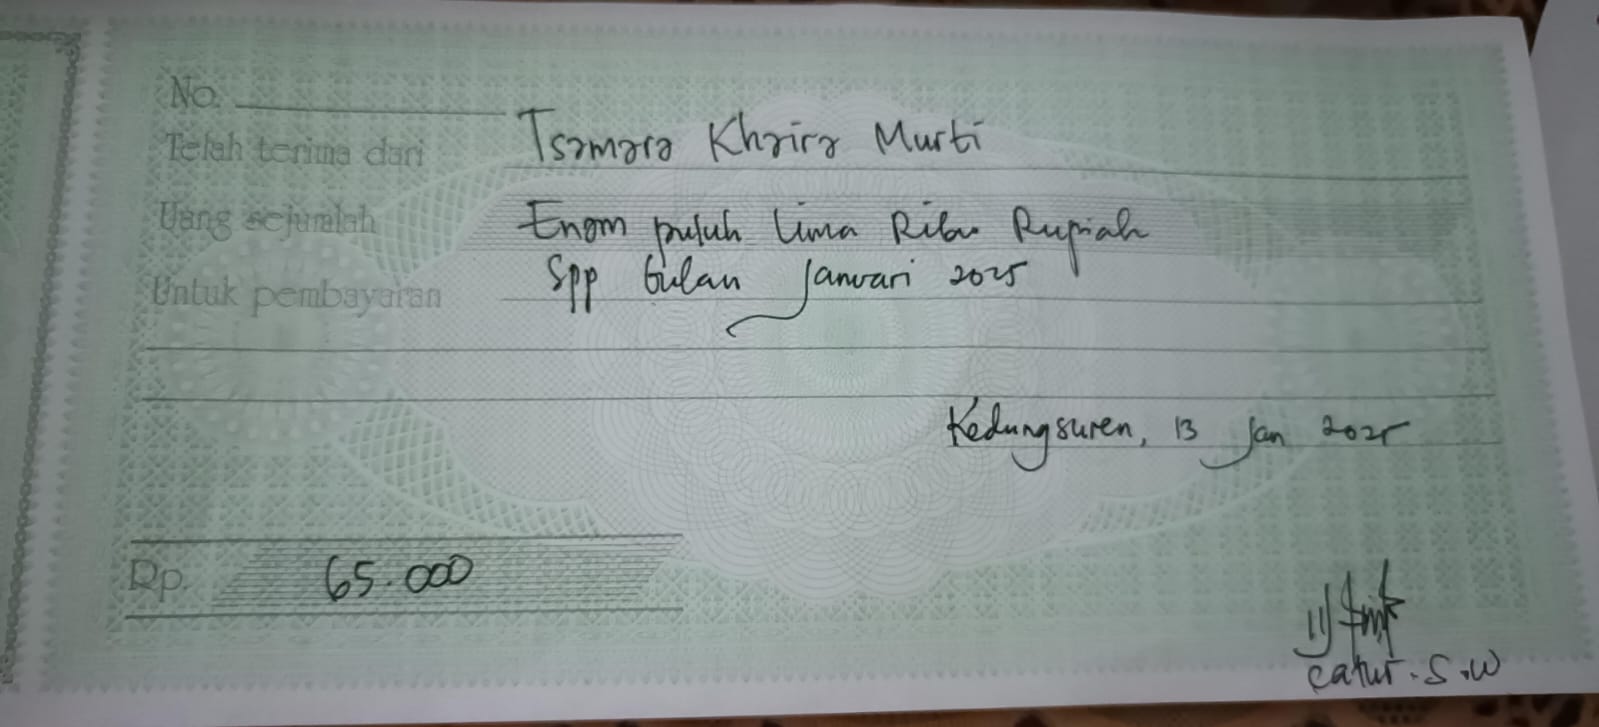 No.
Telah terima dari Tsamara Khaira Murti
Uang sejumlah Enam puluh lima Ribu Rupiah
Untuk pembayaran Spp bulan Januari 2025
Kedungsuren, 13 Jan 2025
Rp. 65.000
Catur.S.W